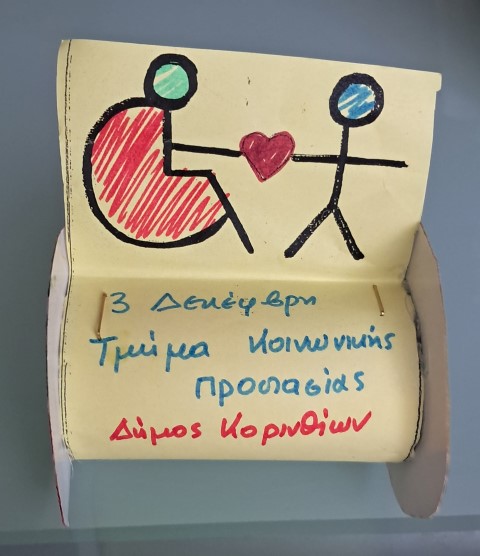 3 Δεκέμβρη
Τμήμα Κοινωνικής
Προστασίας
Δήμος Κορινθίων